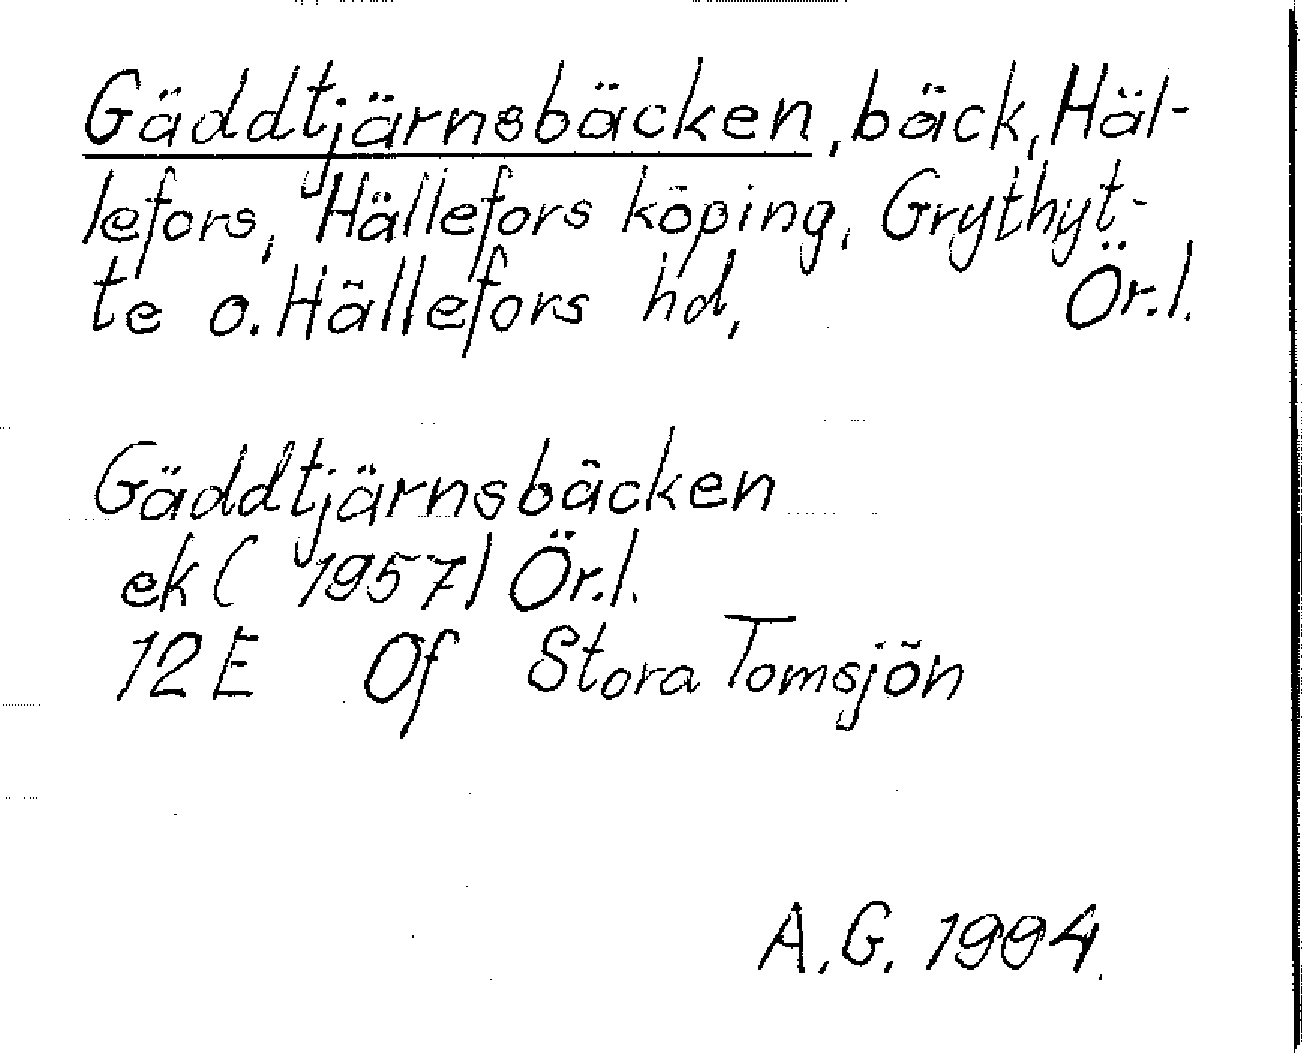 Gäddtjärnsbäcken, bäck, Häl-
lefors, Hällefors köping, Grythyt-
te o. Hällefors hd, Ör.l.
Gäddtjärnsbäcken
ek (1957) Ör.l.
12E Of Stora Tomsjön
A.G. 1994.